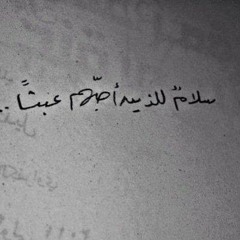 سلامٌ للذين أحبّهم عبثًا..